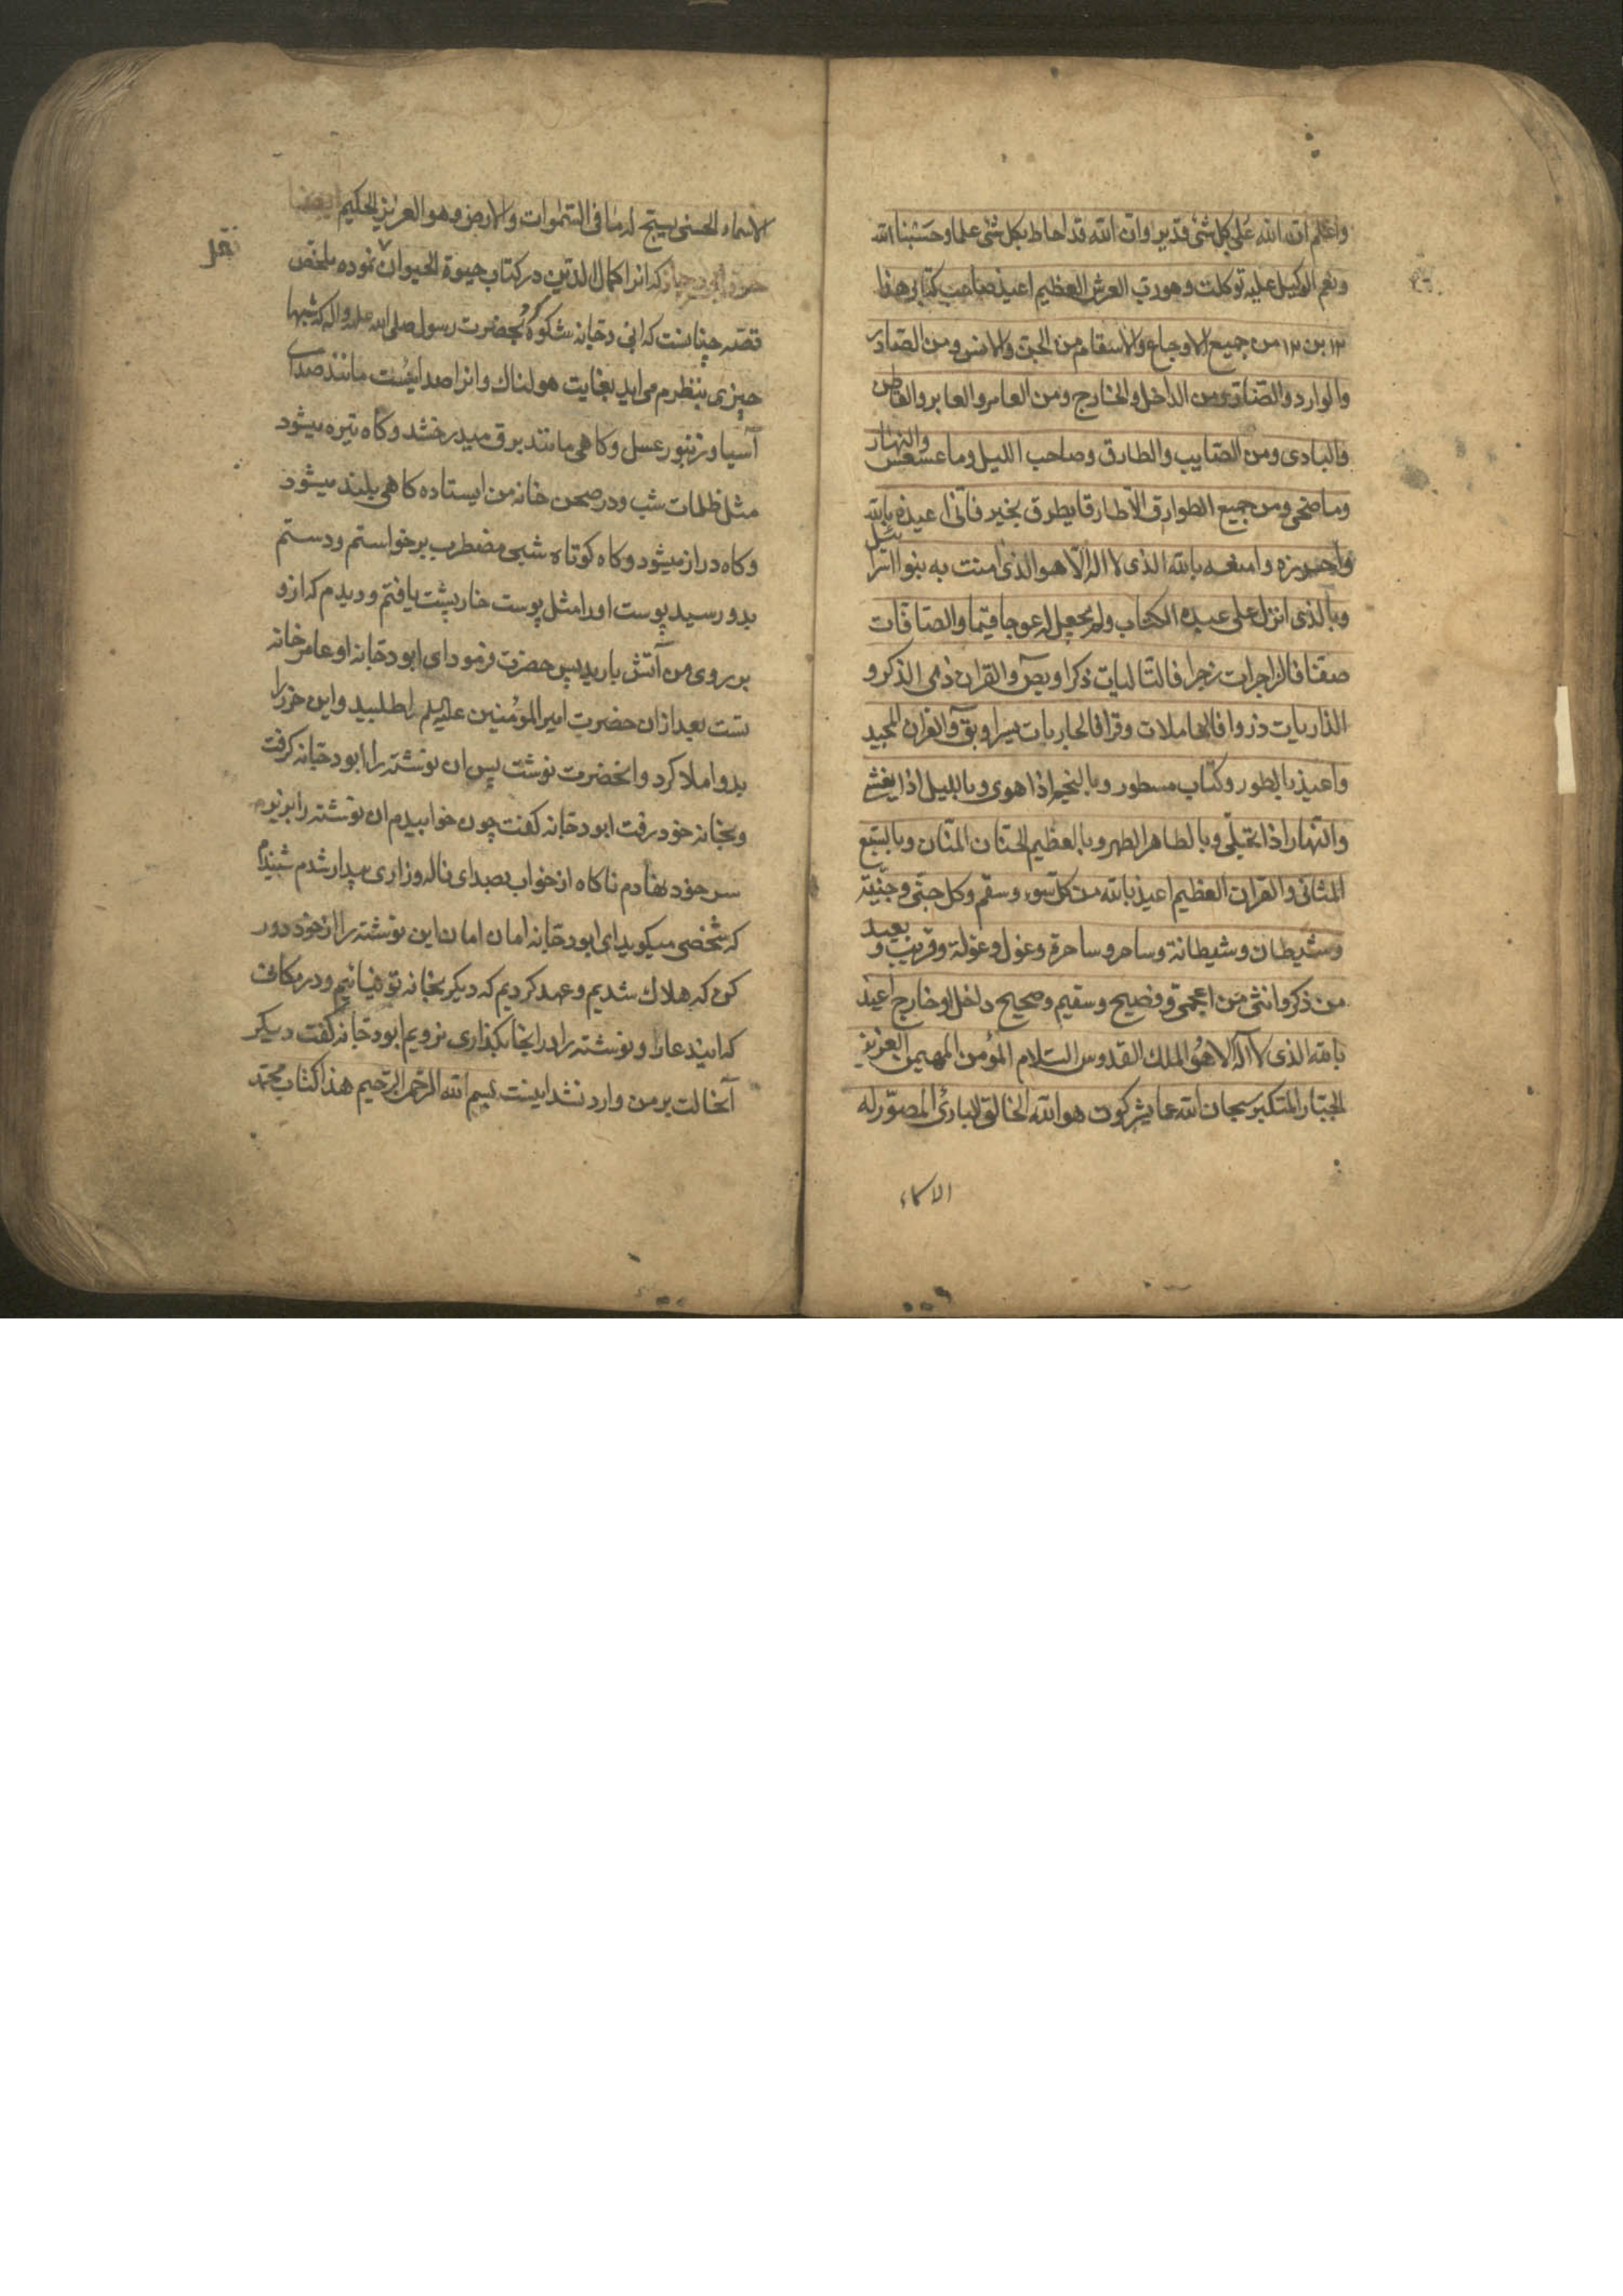 واعلم ان الله علی کل شئ قدیر وان الله قد احاط بکل شئ علما وحسبنا الله
ونعم الوکیل علیه توکلت وهو رب العرش العظیم اعیذ صاحب کتابی هذا
من جمیع الاوجاع والاسقام من الجن والانس ومن الصادر
والوارد والصادی ومن الداخل والخارج ومن العامر والعابر والقاطن
والبادی ومن الصایب والطارق وصاحب اللیل وما عسعس والنهار
وما ضحی ومن جمیع الطوارق الا طارقا یطرق بخیر فانی اعیذه بالله
واحرزه وامنعه بالله الذی لا اله الا هو الذی امنت به بنوا اسرائیل
وبالذی انزل علی عبده الکتاب ولم یجعل له عوجا قیما والصافات
صفا فالزاجرات زجرا فالتالیات ذکرا وبص والقران ذی الذکر و
الذاریات ذروا فالحاملات وقرا فالجاریات یسرا وبق والقران المجید
واعیذ بالطور وکتاب مسطور وبالنجم اذا هوی وباللیل اذا یغشی
والنهار اذا تجلی وبالطاهر المطهر وبالعظیم الحنان المنان وبالسبع
المثانی والقران العظیم اعیذ بالله من کل سوء وسقم وکل جنی وجنیة
وشیطان وشیطانة وساحر وساحرة وغول وغولة وقریب و بعید
من ذکر وانثی من اعجمی وفصیح وسقیم وصحیح داخل او خارج اعیذ
بالله الذی لا اله الا هو الملك القدوس السلام المؤمن المهیمن العزیز
الجبار المتکبر سبحان الله عما یشرکون هو الله الخالق الباری المصور له
الاسماء
الاسماء الحسنی یسبح له ما فی السموات والارض وهو العزیز الحکیم ایضا
حرز ابی دجانه که انرا کمال الدین در کتاب حیوة الحیوان نموده ملخص
نقل
قصه چنانست که ابی دجانه شکوه بحضرت رسول صلی الله علیه واله کرد که شبها
چیزی بنظرم می اید بغایت هولناك وانرا صدائیست مانند صدای
آسیا وزنبور عسل وکاهی مانند برق میدرخشد وکاه تیره میشود
مثل ظلمات شب ودر صحن خانه من ایستاده کاهی بلند میشود
وکاه دراز میشود وکاه کوتاه شبی مضطرب برخواستم ودستم
بدو رسید پوست اورا مثل پوست خارپشت یافتم ودیدم که ازو
بر روی من آتش بارید پس حضرت فرمود ای ابو دجانه او عامر خانه
تست بعد ازان حضرت امیر المؤمنین علیه السلم را طلبید واین حرز را
بدو املا کرد وانحضرت نوشت پس ان نوشته را ابو دجانه کرفت
وبخانه خود رفت ابو دجانه کفت چون خوابیدم ان نوشته را بر زیر
سر خود نهادم ناکاه از خواب بصدای ناله وزاری بیدار شدم شنیدم
که شخصی میکوید ای ابو دجانه امان امان این نوشته را از خود دور
کن که هلاك شدیم وعهد کردیم که دیکر بخانه تو نیائیم ودر مکانی
که ایندعا را ونوشته را در انجا بکذاری نرویم ابو دجانه کفت دیکر
آنحالت بر من وارد نشد اینست بسم الله الرحمن الرحیم هذا کتاب محمد